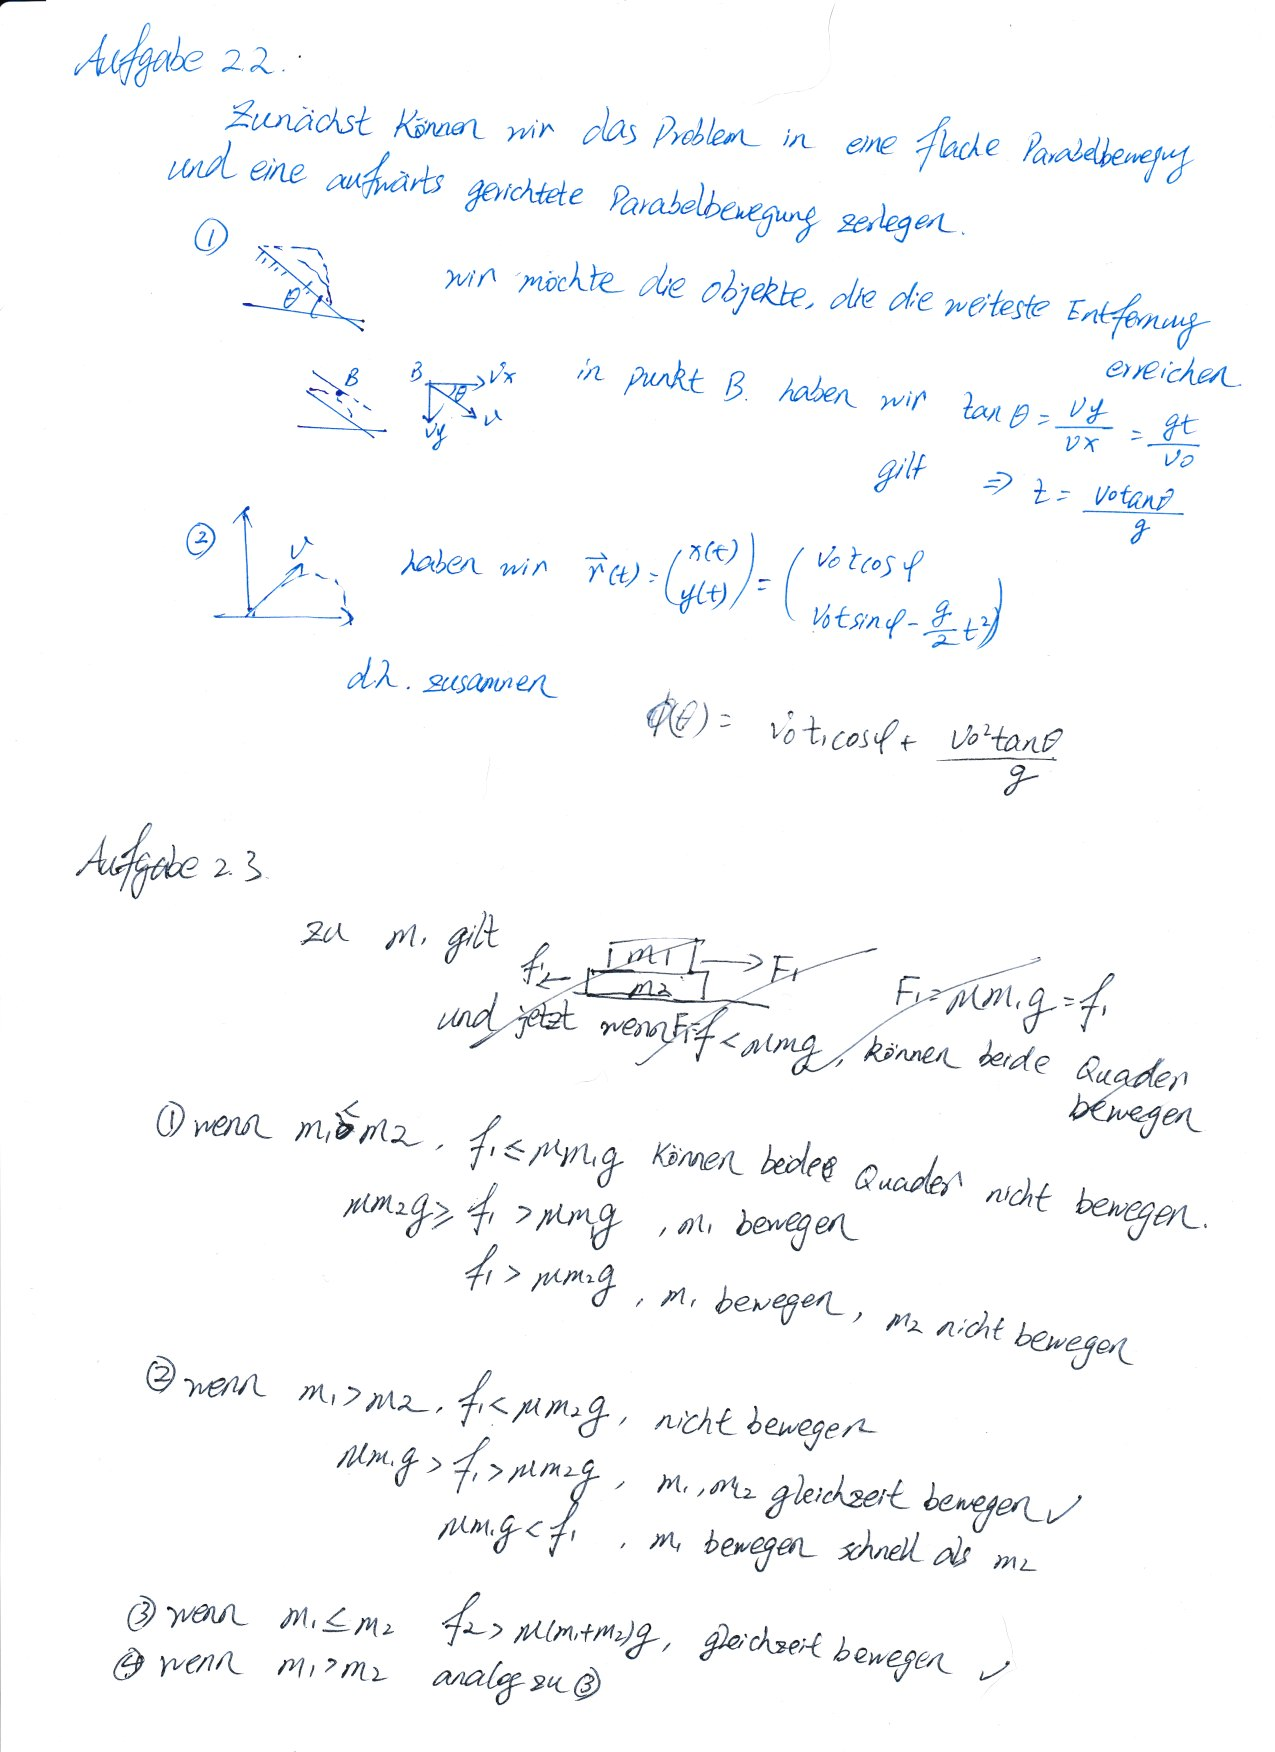 Aufgabe 2.2.
Zunächst können wir das Problem in eine flache Parabelbewegung
und eine aufwärts gerichtete Parabelbewegung zerlegen.
①
θ
wir möchte die objekte, die die weiteste Entfernung
erreichen.
B
B vx
θ
vy v
in punkt B. haben wir tan θ = vy/vx = gt/v0
gilt ⇒ t = v0tanθ/g
②
v
haben wir r⃗(t) = (x(t) y(t)) = (v0tcosφ v0tsinφ - g/2 t²)
d.h. zusammen
φ(θ) = v0t1cosφ + v0²tanθ/g
Aufgabe 2.3.
zu m1 gilt
m1
f2 F1
m2
F1 = μm1g = f1
und jetzt wenn F1=f < μmg, können beide Quader
bewegen
① wenn m1 ≤ m2. f1 ≤ μm1g können beide Quader nicht bewegen.
μm2g ≥ f1 > μm1g, m1 bewegen
f1 > μm2g, m1 bewegen, m2 nicht bewegen
② wenn m1 > m2. f1 < μm2g, nicht bewegen
μm1g > f1 > μm2g, m1, m2 gleichzeit bewegen ✓
μm1g < f1, m1 bewegen schnell als m2
③ wenn m1 ≤ m2 f2 > μ(m1+m2)g, gleichzeit bewegen ✓
④ wenn m1 > m2 analog zu ③